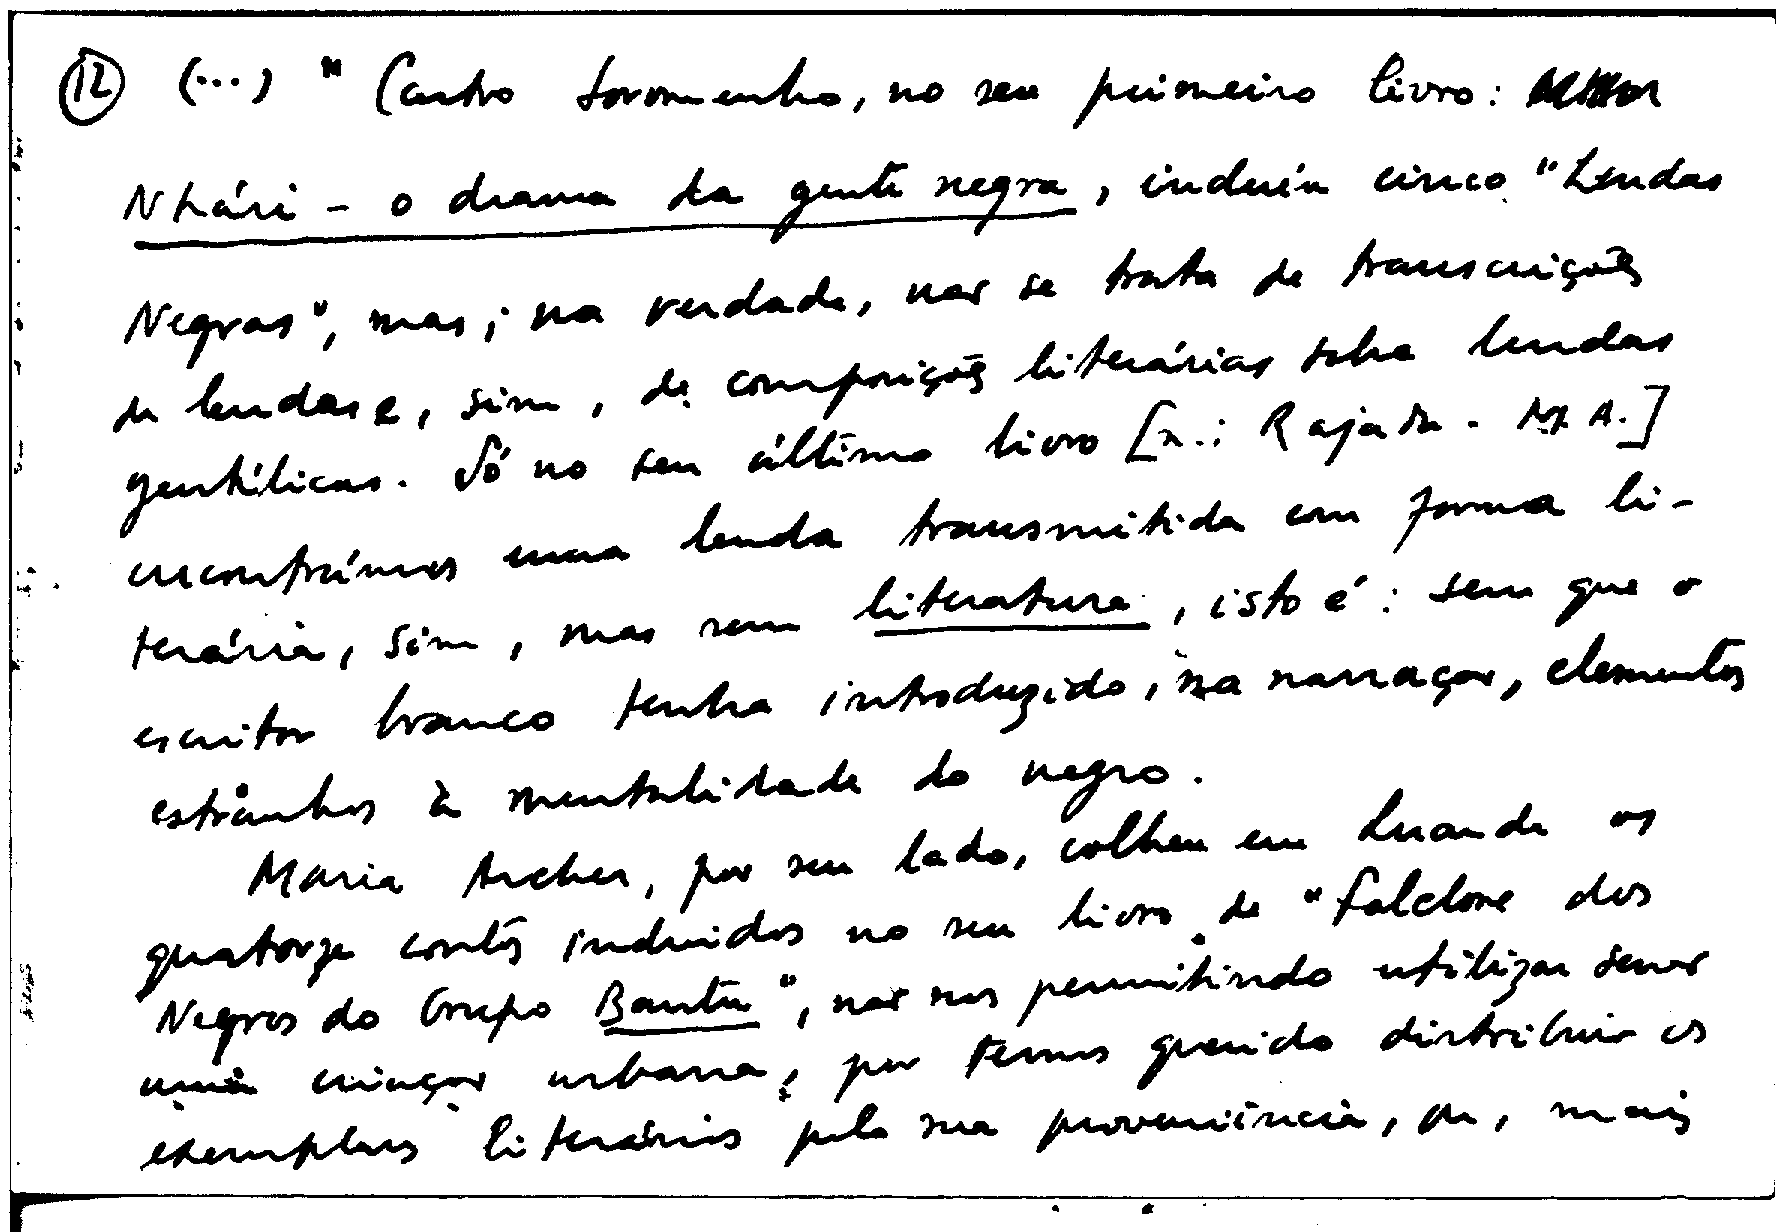 (12) (...) " Castro Soromenho, no seu primeiro livro:
Nhári - o drama da gente negra, incluiu cinco "Lendas
Negras", mas, na verdade, não se trata de transcrições
de lendas e, sim, de composições literárias sobre lendas
gentílicas. Só no seu último livro [n.: Rajada. M.A.]
encontrámos uma lenda transmitida em forma li-
terária, sim, mas sem literatura, isto é: sem que o
escritor branco tenha introduzido, na narração, elementos
estranhos à mentalidade do negro.
Maria Archer, por seu lado, colheu em Luanda os
quatorze contos incluidos no seu livro de "Folclore dos
Negros do Grupo Bantu", não nos permitindo utilizar senão
uma criação urbana, por termos querido distribuir os
exemplares literários pela sua proveniência, ou, mais